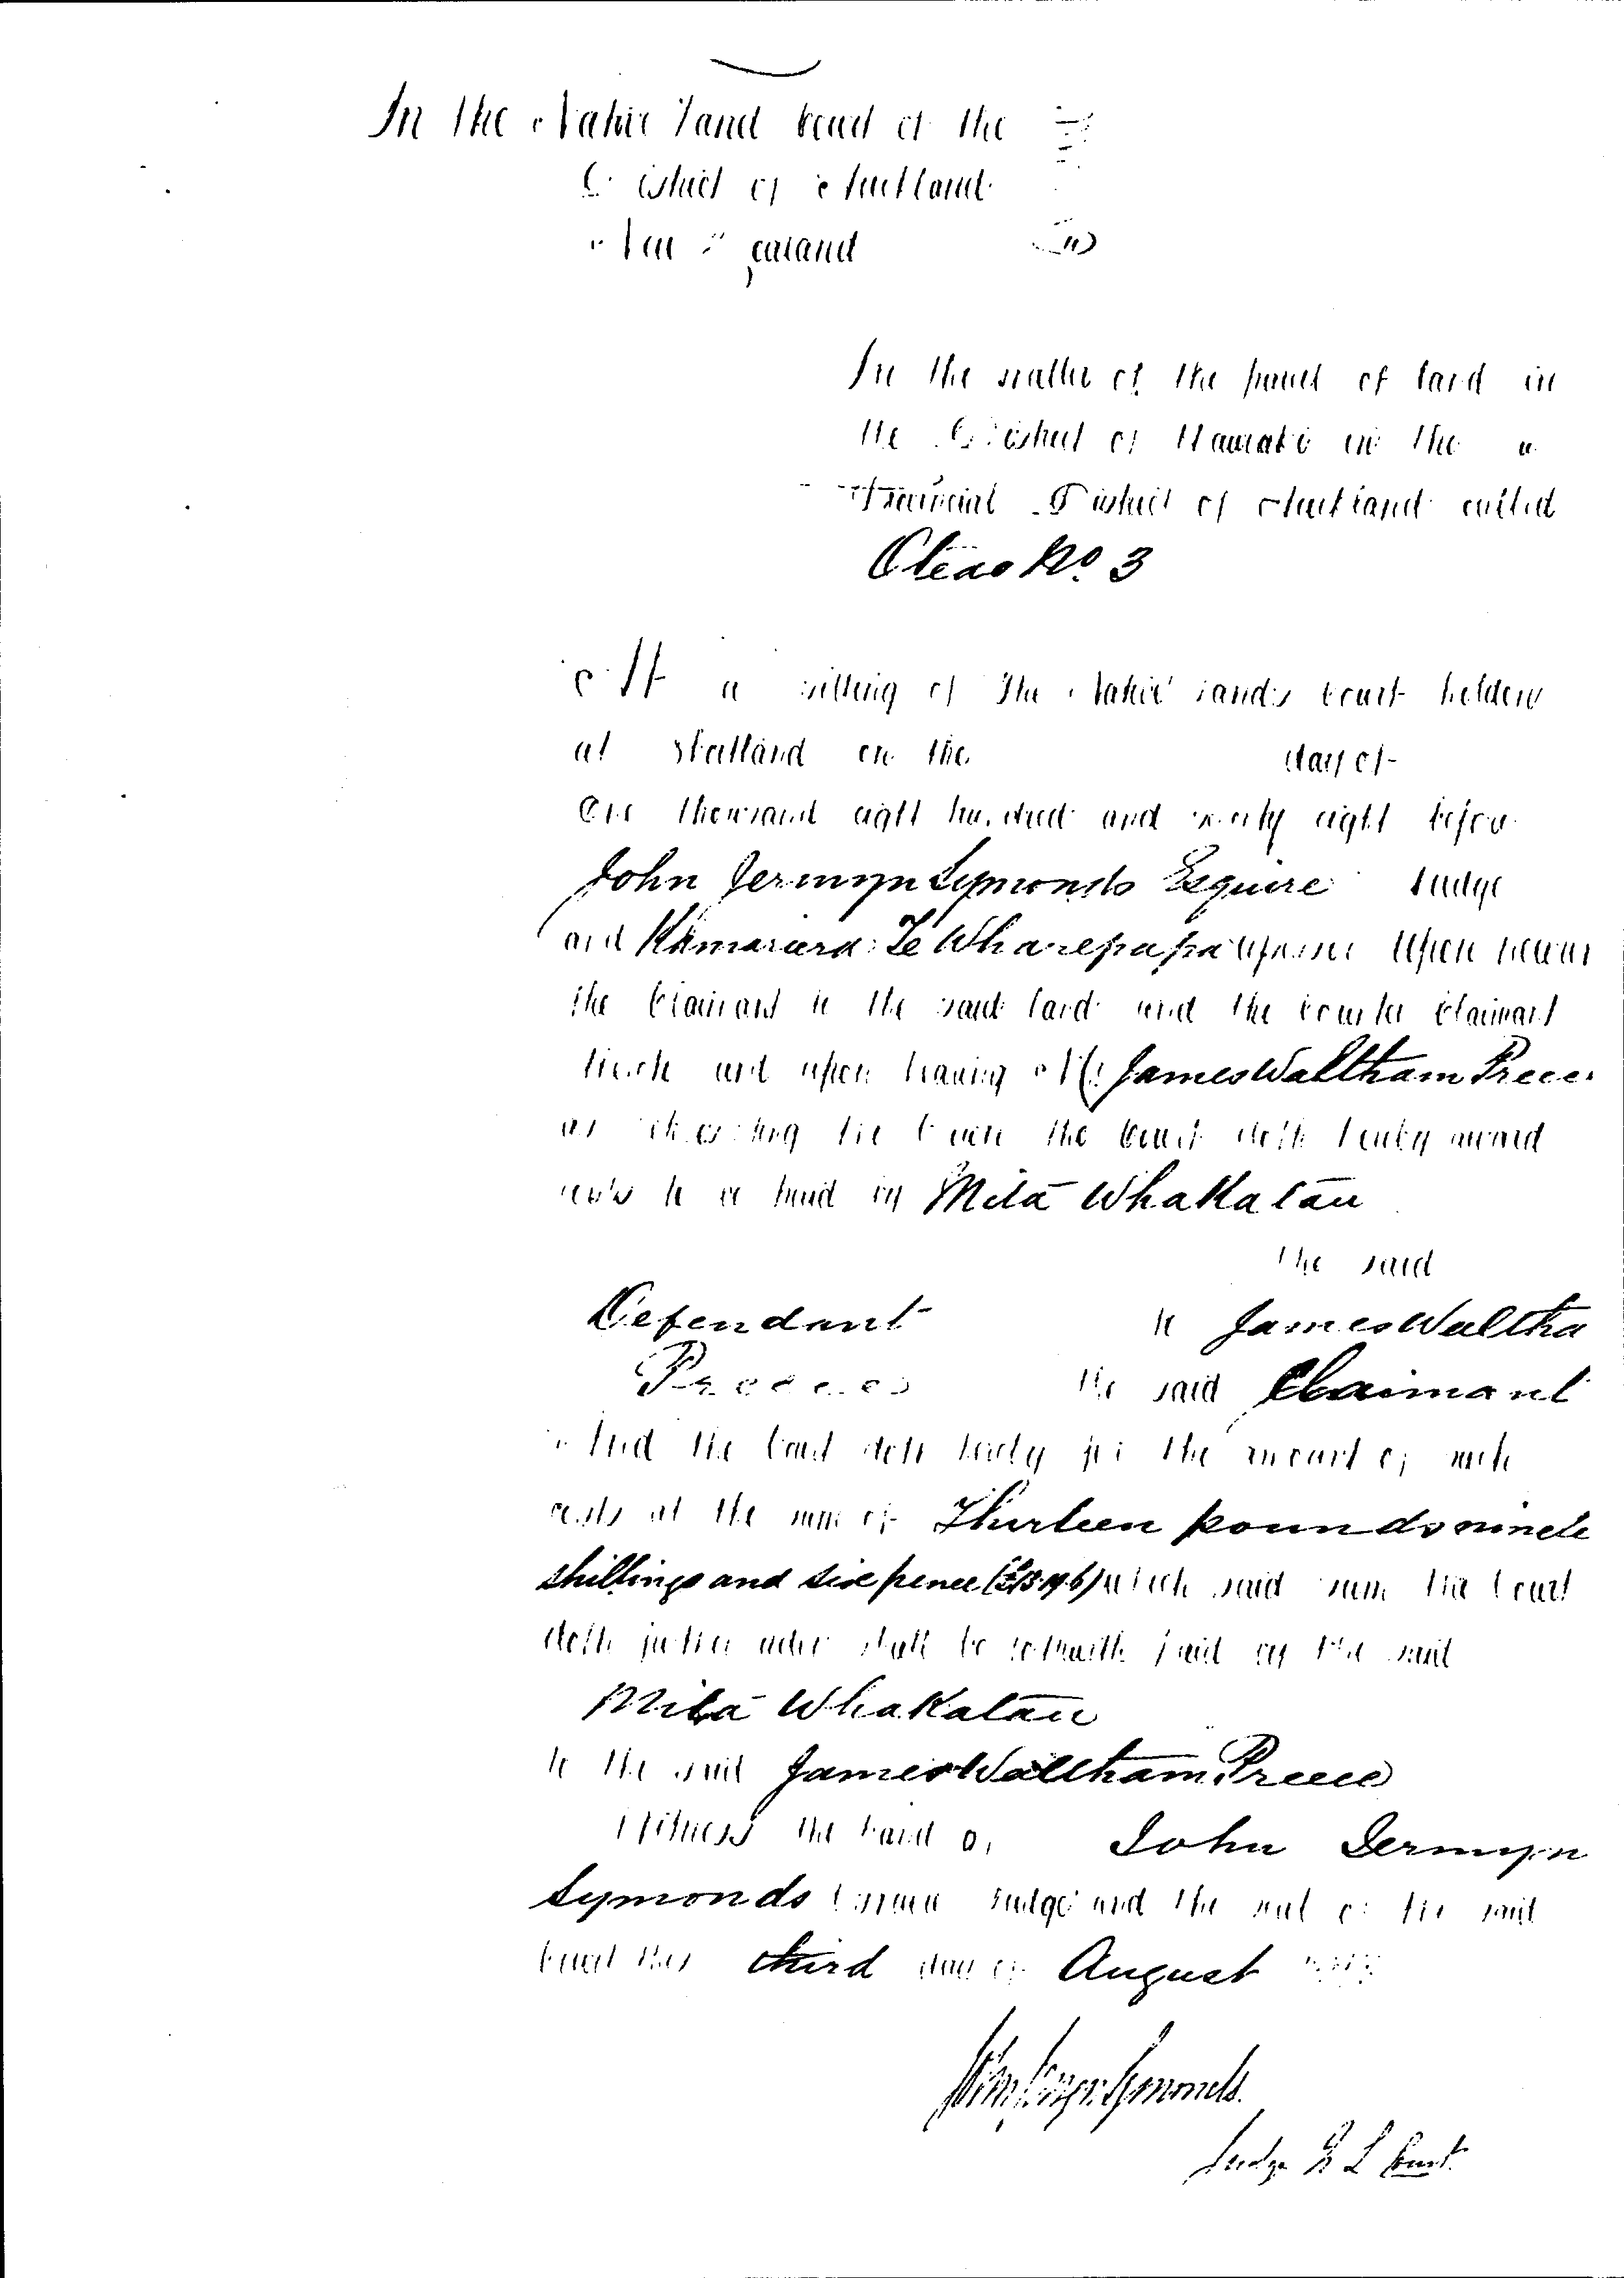 In the Native Land Court of the
District of Auckland
New Zealand
In the matter of the parcel of land in
the District of Hauraki in the
Provincial District of Auckland called
Oteao No. 3
At a sitting of the Native Lands Court holden
at Shortland on the day of
One thousand eight hundred and seventy eight before
John Jermyn Symonds Esquire Judge
and Te Wharepapa Assessor Upon hearing
the Claimant to the said land and the Counter Claimant
thereto and upon hearing Mr. James Waltham Preece
as the Court doth hereby award
costs to be paid by Mita Whakatau
the said
Defendant to James Waltha
Preece the said Claimant
And the Court doth hereby fix the amount of such
costs at the sum of Thirteen pounds ninete
shillings and six pence (£13.19.6) which said sum the Court
doth further order shall be forthwith paid by the said
Mita Whakatau
to the said James Waltham Preece
Witness the hand of John Jermyn
Symonds Esquire Judge and the seal of the said
Court this third day of August
John Jermyn Symonds.
Judge N L Court.